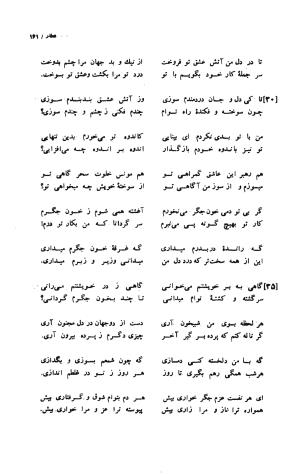 عطار / ۱۶۱
تا در دل من آتش عشق تو فروخت از نیك و بد جهان مرا چشم بدوخت
سر جملهٔ کار خود بگویم با تو درد تو مرا بکشت وعشق تو بسوخت
[۳۰] تا کی دل و جان دردمندم سوزی وز آتش عشق بندبندم سوزی
چون سوخته و فکندهٔ راه توام چندم فکنی زچشم و چندم سوزی؟
با من تو بدی نکردم ای بینایی کاندوه تو میخوردم بدین تنهایی
تو نیز باندوه خودم بازگذار اندوه بر اندوه چه میافزایی؟
هم رهبر این عاشق گمراهی تو هم مونس خلوت سحر گاهی تو
میسوزم و از سوز من آگاهی تو از سوختهٔ خویش چه میخواهی تو؟
گر بی تو دمی خون جگر می نخوردم آغشته همی شوم ز خون جگرم
کار تو بهیچ گونه پی می نبرم سر گردانا که من بکار تو درم!
گه راندهٔ دربدرم میداری گه غرقهٔ خون جگرم میداری
این از همه سخت تر که درد دل من میدانی و زیر و زبرم میداری
[۳۵] گاهی بر خویشتنم میخوانی گاهی ز در خویشتنم میرانی
سرگشته و کشتهٔ توام میدانی تا چند بخون جگرم گردانی؟
هر لحظه بوی من شبیخون آری دست از دوجهان در دل مجنون آری
گر ناله کنم که پرده بر گیر آخر چیزی دگرم ز پرده بیرون آری
گه با من دلخسته کنی دمسازی گه چون شمعم بسوزی و بگدازی
هرشب همگی رهم بگیری تا روز هر روز ز نو در غلطم اندازی
ای هر نفسم عزم جگر خواری بیش هر دم بتوام شوق و گرفتاری بیش
همواره ترا ناز و مرا زاری بیش پیوسته ترا عز و مرا خواری بیش